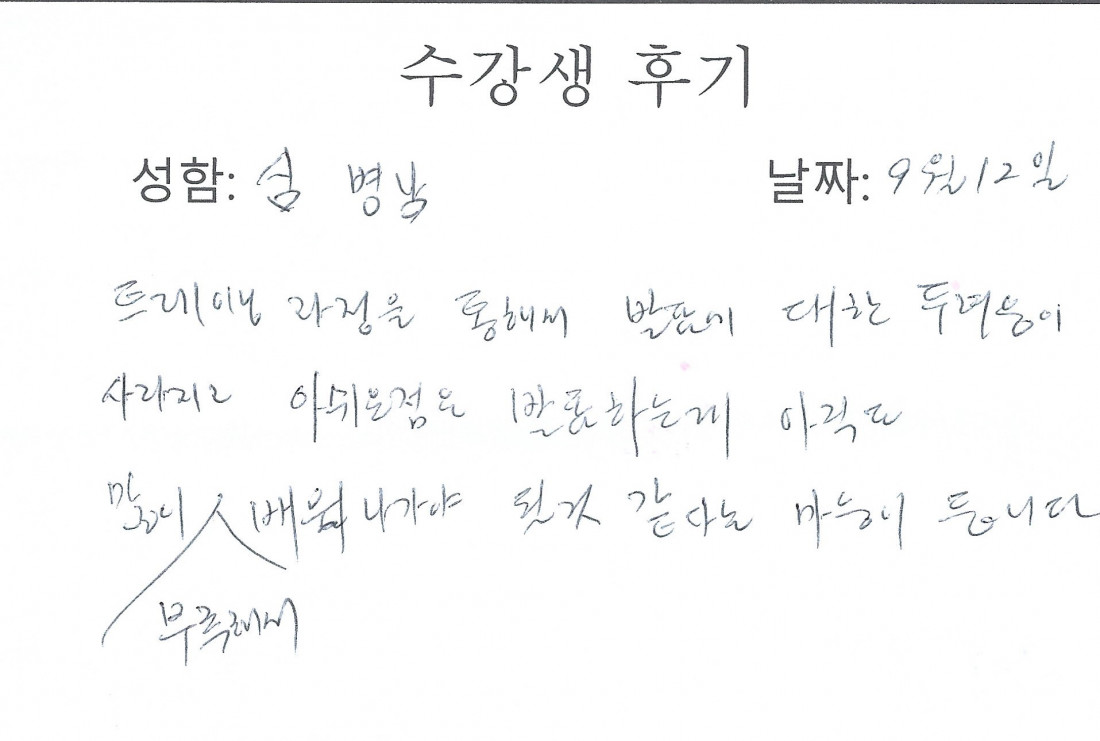 수강생 후기
성함: 심 병남 날짜: 9월 12일
트레이닝 과정을 통해서 발표에 대한 두려움이
사라지고 아쉬운점은 발표하는데 아직도
많이 배워 나가야 될것 같다는 마음이 듭니다
부족해서